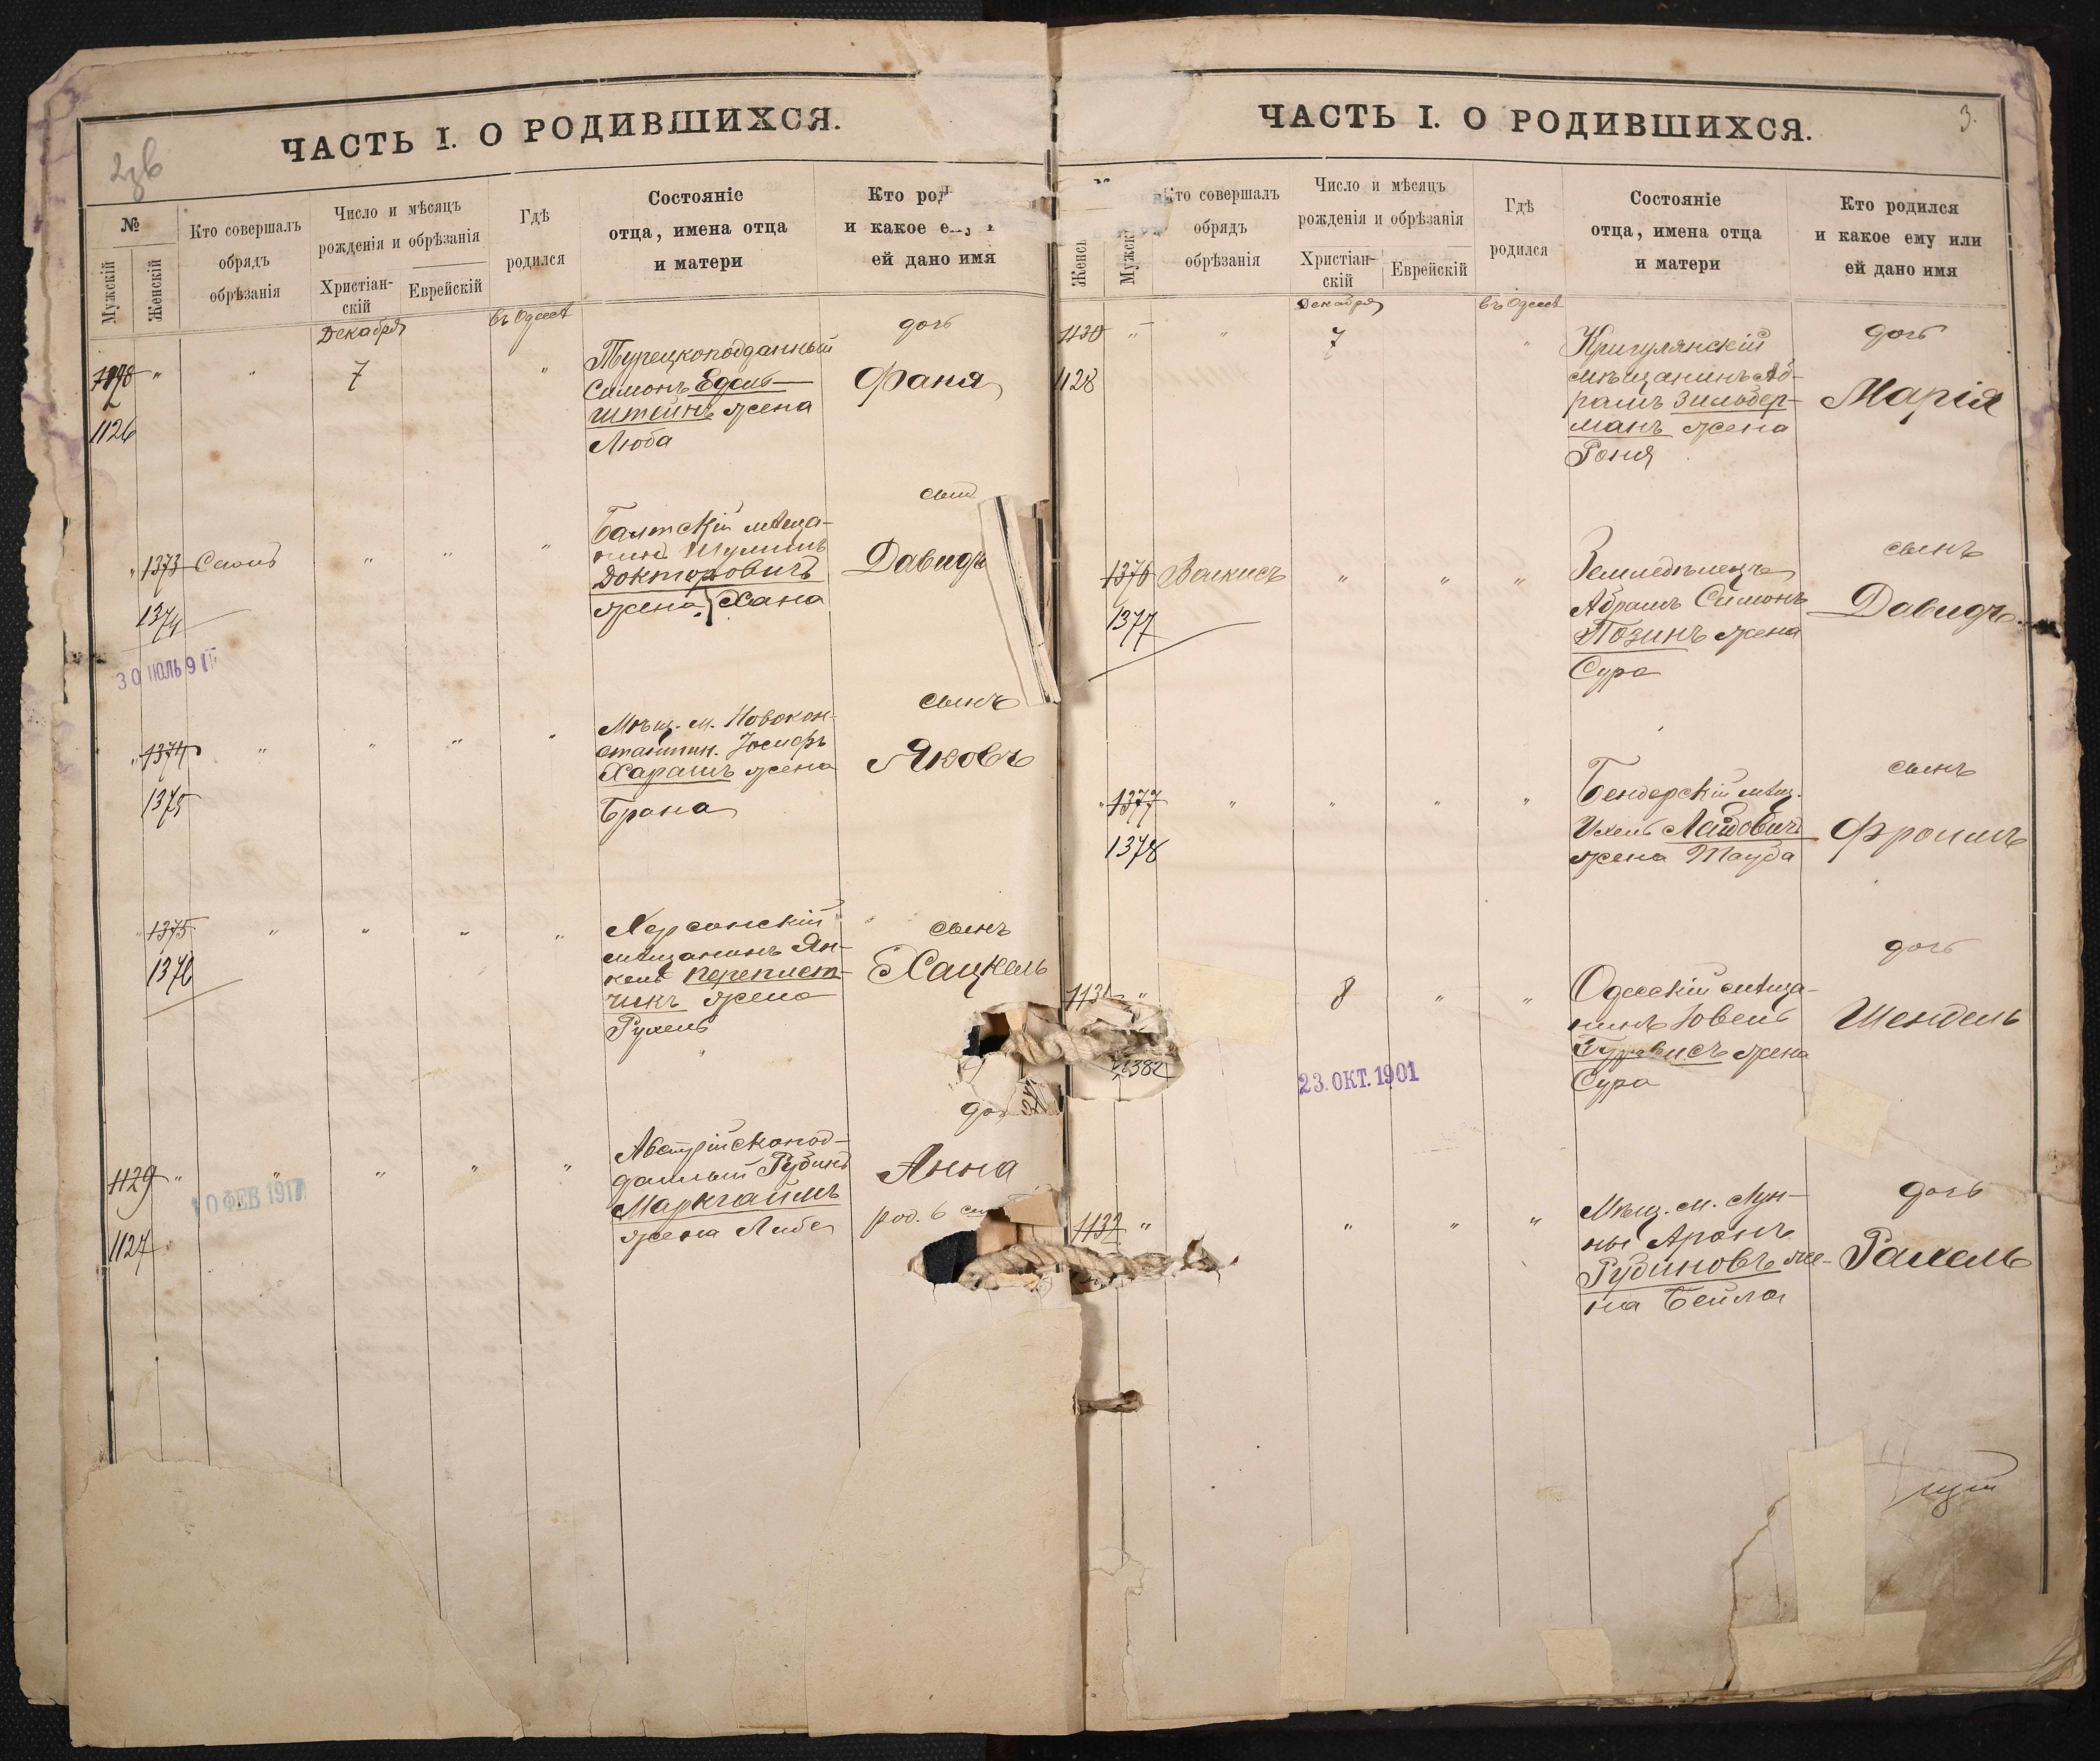 ЧАСТЬ I. О РОДИВШИХСЯ.
№
Мужскій
Женскій
Кто совершалъ
обрядъ
обрѣзанія
Число и мѣсяцъ
рожденія и обрѣзанія
Христіан-
скій
Еврейскій
Гдѣ
родился
Состояніе
отца, имена отца
и матери
Кто род
и какое ему
ей дано имя
Декабря
въ Одессѣ
1126
7
Турецкоподданный
Симонъ Едель-
штейнъ жена
Люба
дочь
Фаня
1373
1374
30 ИЮЛЬ 91
Балтскій мѣща-
нинъ
Докторовичъ
жена Хана
сынъ
Давидъ
1374
1375
Мѣщ. м. Новокон-
стантин. Іосифъ
Харашъ жена
Брана
сынъ
Яковъ
1375
1376
Херсонскій
мѣщанинъ Ян-
кель Переплет-
чикъ жена
Рухель
сынъ
Хацкель
1129
1127
10 ФЕВ 1917
Австрійскопод-
данный Рубинъ
Маркгаймъ
жена Либа
доч
Анна
род. 6
ЧАСТЬ I. О РОДИВШИХСЯ.
3.
Женс
Мужскі
Кто совершалъ
обрядъ
обрѣзанія
Число и мѣсяцъ
рожденія и обрѣзанія
Христіан-
скій
Еврейскій
Гдѣ
родился
Состояніе
отца, имена отца
и матери
Кто родился
и какое ему или
ей дано имя
Декабря
въ Одессѣ
1130
1128
7
Кригулянскій
мѣщанинъ Аб-
рамъ Зильбер-
манъ жена
Роня
дочь
Марія
1376
1377
Волкисъ
Земледѣлецъ
Абрамъ Симонъ
Позинъ жена
Сура
сынъ
Давидъ
1377
1378
Бендерскій мѣщ.
Ихель
жена Тауба
сынъ
Фроимъ
1131
1382
8
23. ОКТ. 1901
Одесскій мѣща-
нинъ Іовель
Гурвисъ жена
Сура
дочь
Шендель
1132
Мѣщ. м. Лун-
ны Аронъ
Рубиновъ же-
на Бейла
дочь
Рахель